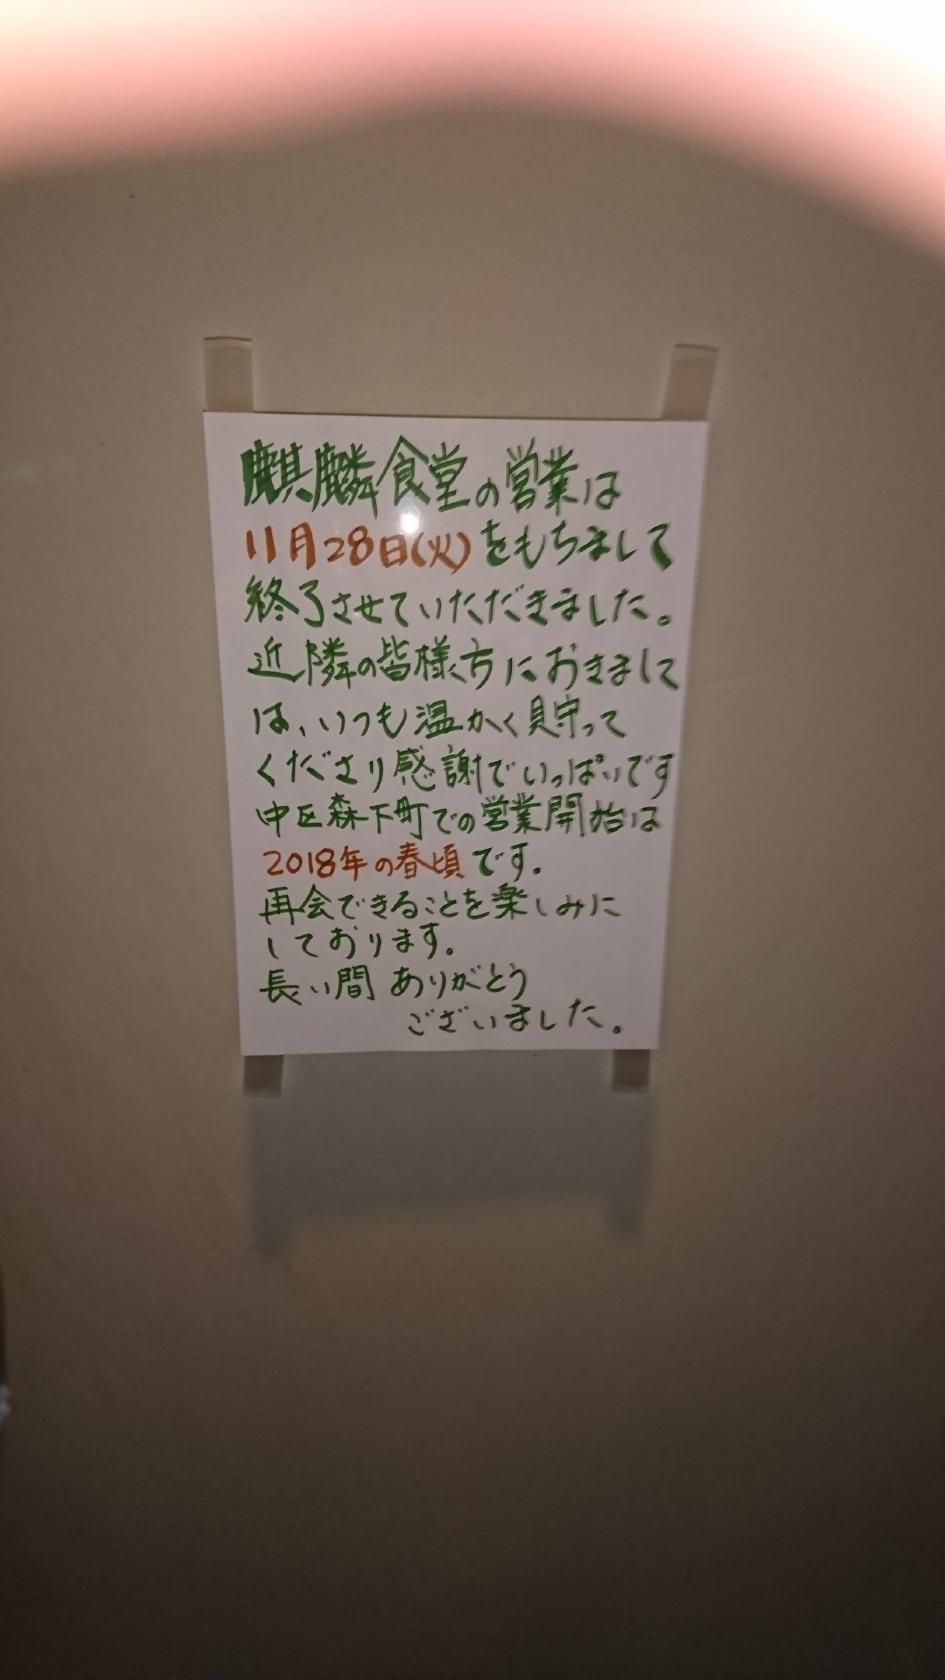 麒麟食堂の営業は
11月28日(火)をもちまして
終了させていただきました。
近隣の皆様方におきまして
は、いつも温かく見守って
くださり感謝でいっぱいです
中区森下町での営業開始は
2018年の春頃です.
再会できることを楽しみに
しております。
長い間 ありがとう
ございました。